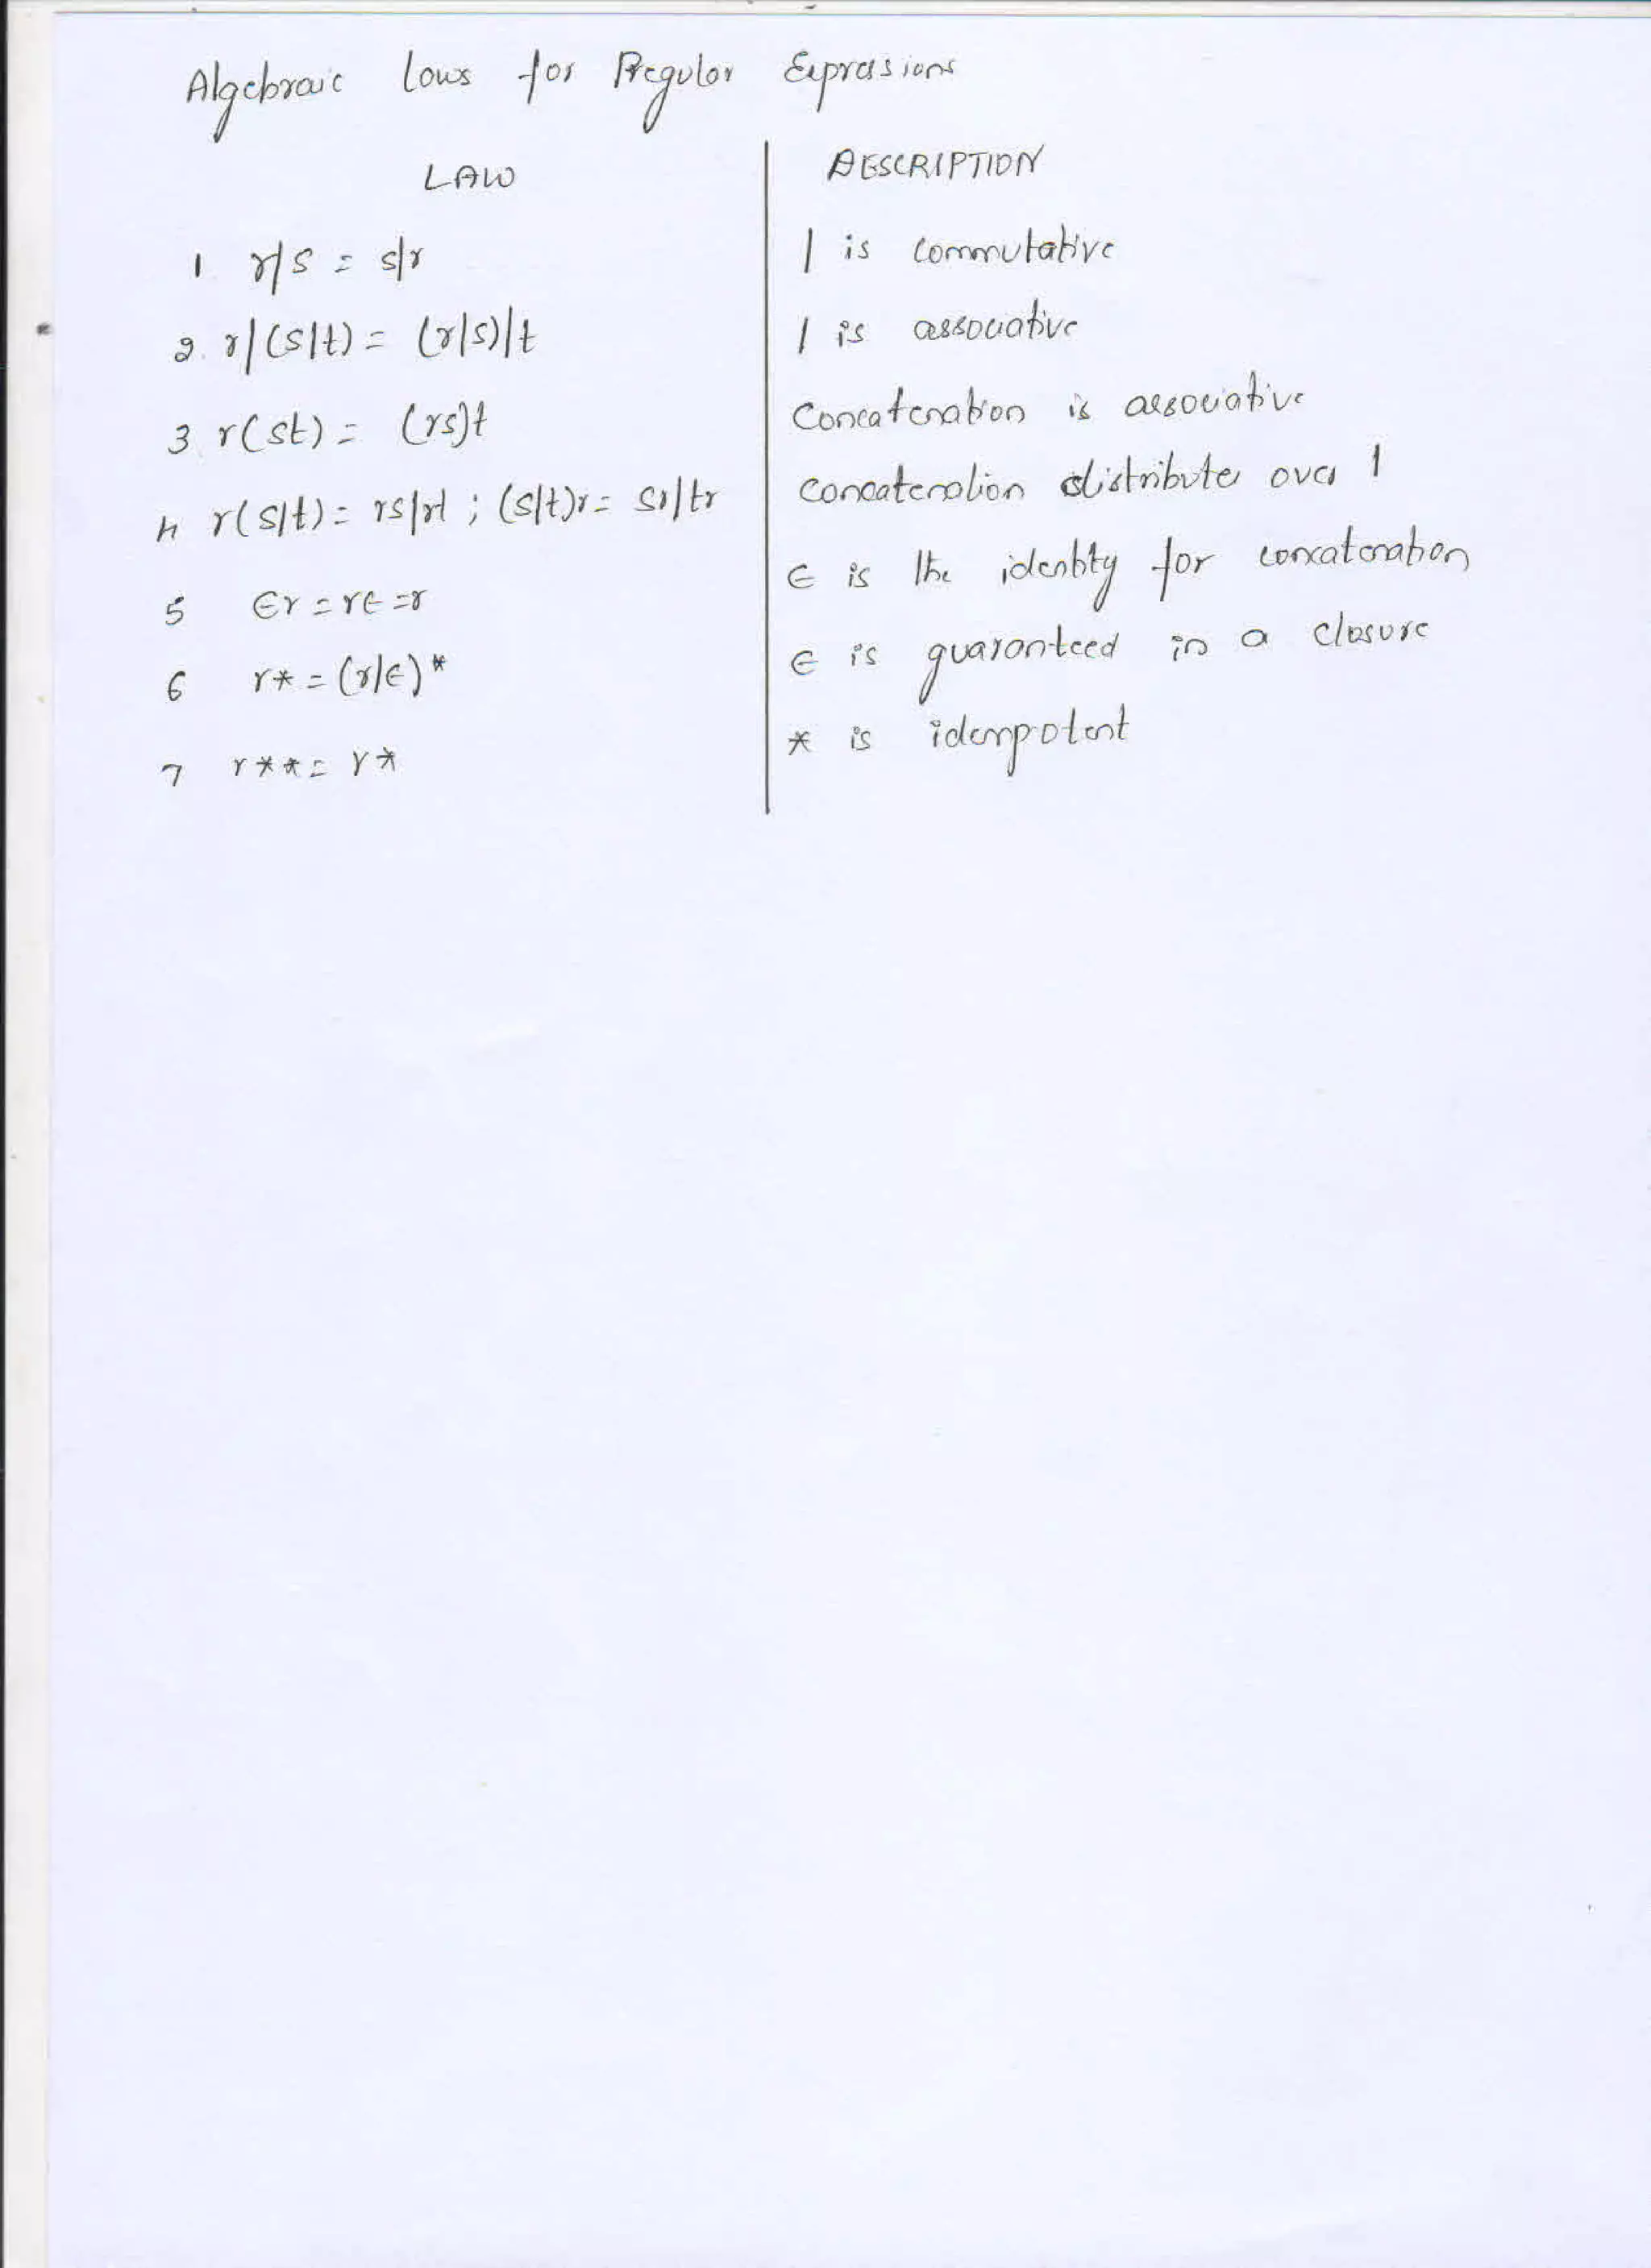 Algebraic Laws for Regular Expressions
LAW | DESCRIPTION
1 r|s = s|r | | is commutative
2. r|(s|t) = (r|s)|t | | is associative
3 r(st) = (rs)t | Concatenation is associative
4 r(s|t) = rs|rt ; (s|t)r = sr|tr | concatenation distribute over |
5 ∈r = r∈ = r | ∈ is the identity for concatenation
6 r* = (r|∈)* | ∈ is guaranteed in a closure
7 r** = r* | * is idempotent